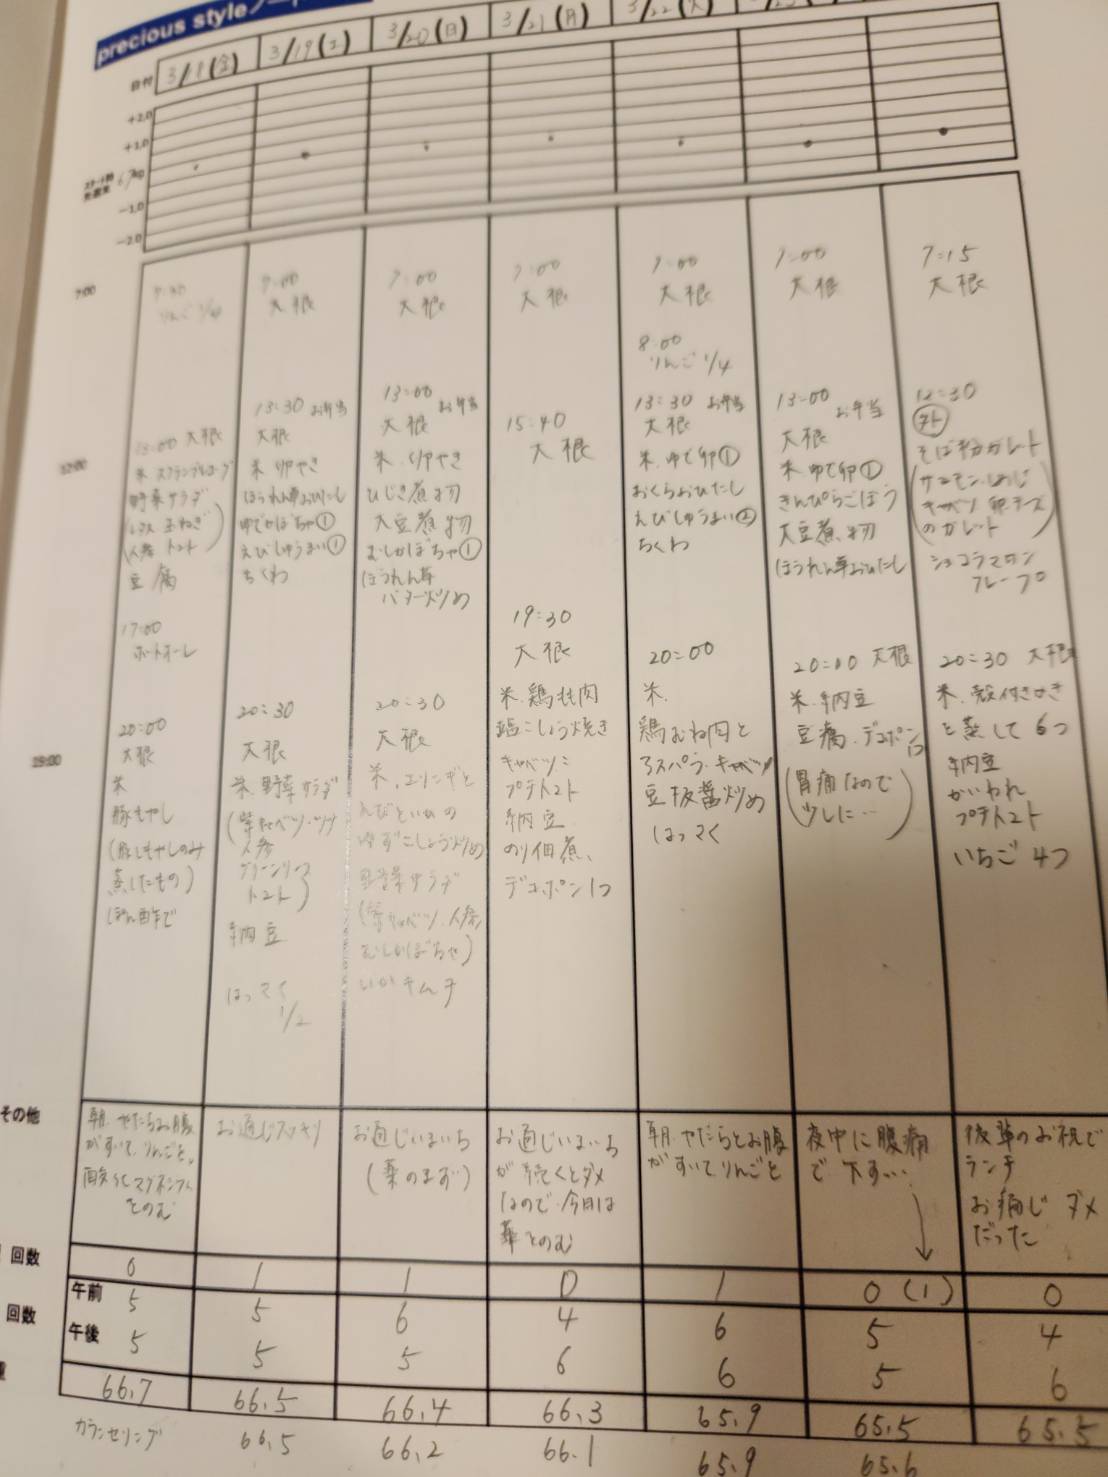 precious styleノート
日付
3/18(金)
3/19(土)
3/20(日)
3/21(月)
3/22(火)
+2.0
+1.0
67kg
-1.0
-2.0
7:00
12:00
19:00
りんご 1/4
13:00 大根
米 スクランブルエッグ
野菜サラダ
レタス 玉ねぎ
人参 トマト
豆腐
17:00
20:00
大根
米
豚もやし
(豚ともやしのみ
蒸したもの)
ぽん酢で
7:00
大根
13:30 お弁当
大根
米 卵やき
ほうれん草おひたし
ゆでかぼちゃ①
えびしゅうまい①
ちくわ
20:30
大根
米、野菜サラダ
(紫キャベツ・ツナ
人参
グリーンリーフ
トマト)
納豆
はっさく
1/2
7:00
大根
13:00 お弁当
大根
米、卵やき
ひじき煮物
大豆煮物
むしかぼちゃ①
ほうれん草
バター炒め
20:30
大根
米、エリンギと
ゆずこしょう炒め
野菜サラダ
(紫キャベツ、人参
むしかぼちゃ)
いかキムチ
7:00
大根
15:40
大根
19:30
大根
米、鶏もも肉
塩こしょう焼き
キャベツ
プチトマト
納豆
のり佃煮、
デコポン1つ
7:00
大根
8:00
りんご 1/4
13:30 お弁当
大根
米、ゆで卵①
おくらおひたし
えびしゅうまい②
ちくわ
20:00
米、
鶏むね肉と
アスパラ・キャベツ
豆板醤炒め
はっさく
7:00
大根
13:00 お弁当
大根
米 ゆで卵①
きんぴらごぼう
大豆煮物
ほうれん草おひたし
20:00 大根
米、納豆
豆腐、デコポン
(胃痛なので
少しに…)
7:15
大根
12:30
外
そば粉ガレット
(サーモン、しめじ
キャベツ 卵チーズ
のガレット)
ショコラマロン
クレープ
20:30 大根
米、殻付きかき
を蒸して 6つ
納豆
かいわれ
プチトマト
いちご 4つ
その他
朝、やたらお腹
がすいて、りんごと、
酸化マグネシウム
をのむ
お通じスッキリ
お通じいまいち
(薬のまず)
お通じいまいち
が続くとダメ
なので、今日は
薬をのむ
朝、やたらとお腹
がすいてりんごを
夜中に腹痛
で下す…
後輩のお祝で
ランチ
お通じ ダメ
だった
回数
0 1 1 0 1 0(1) 0
午前 5 5 6 4 6 5 4
回数
午後 5 5 5 6 6 5 6
66.7 66.5 66.4 66.3 65.9 65.5 65.5
カウンセリング 66.5 66.2 66.1 65.9 65.6